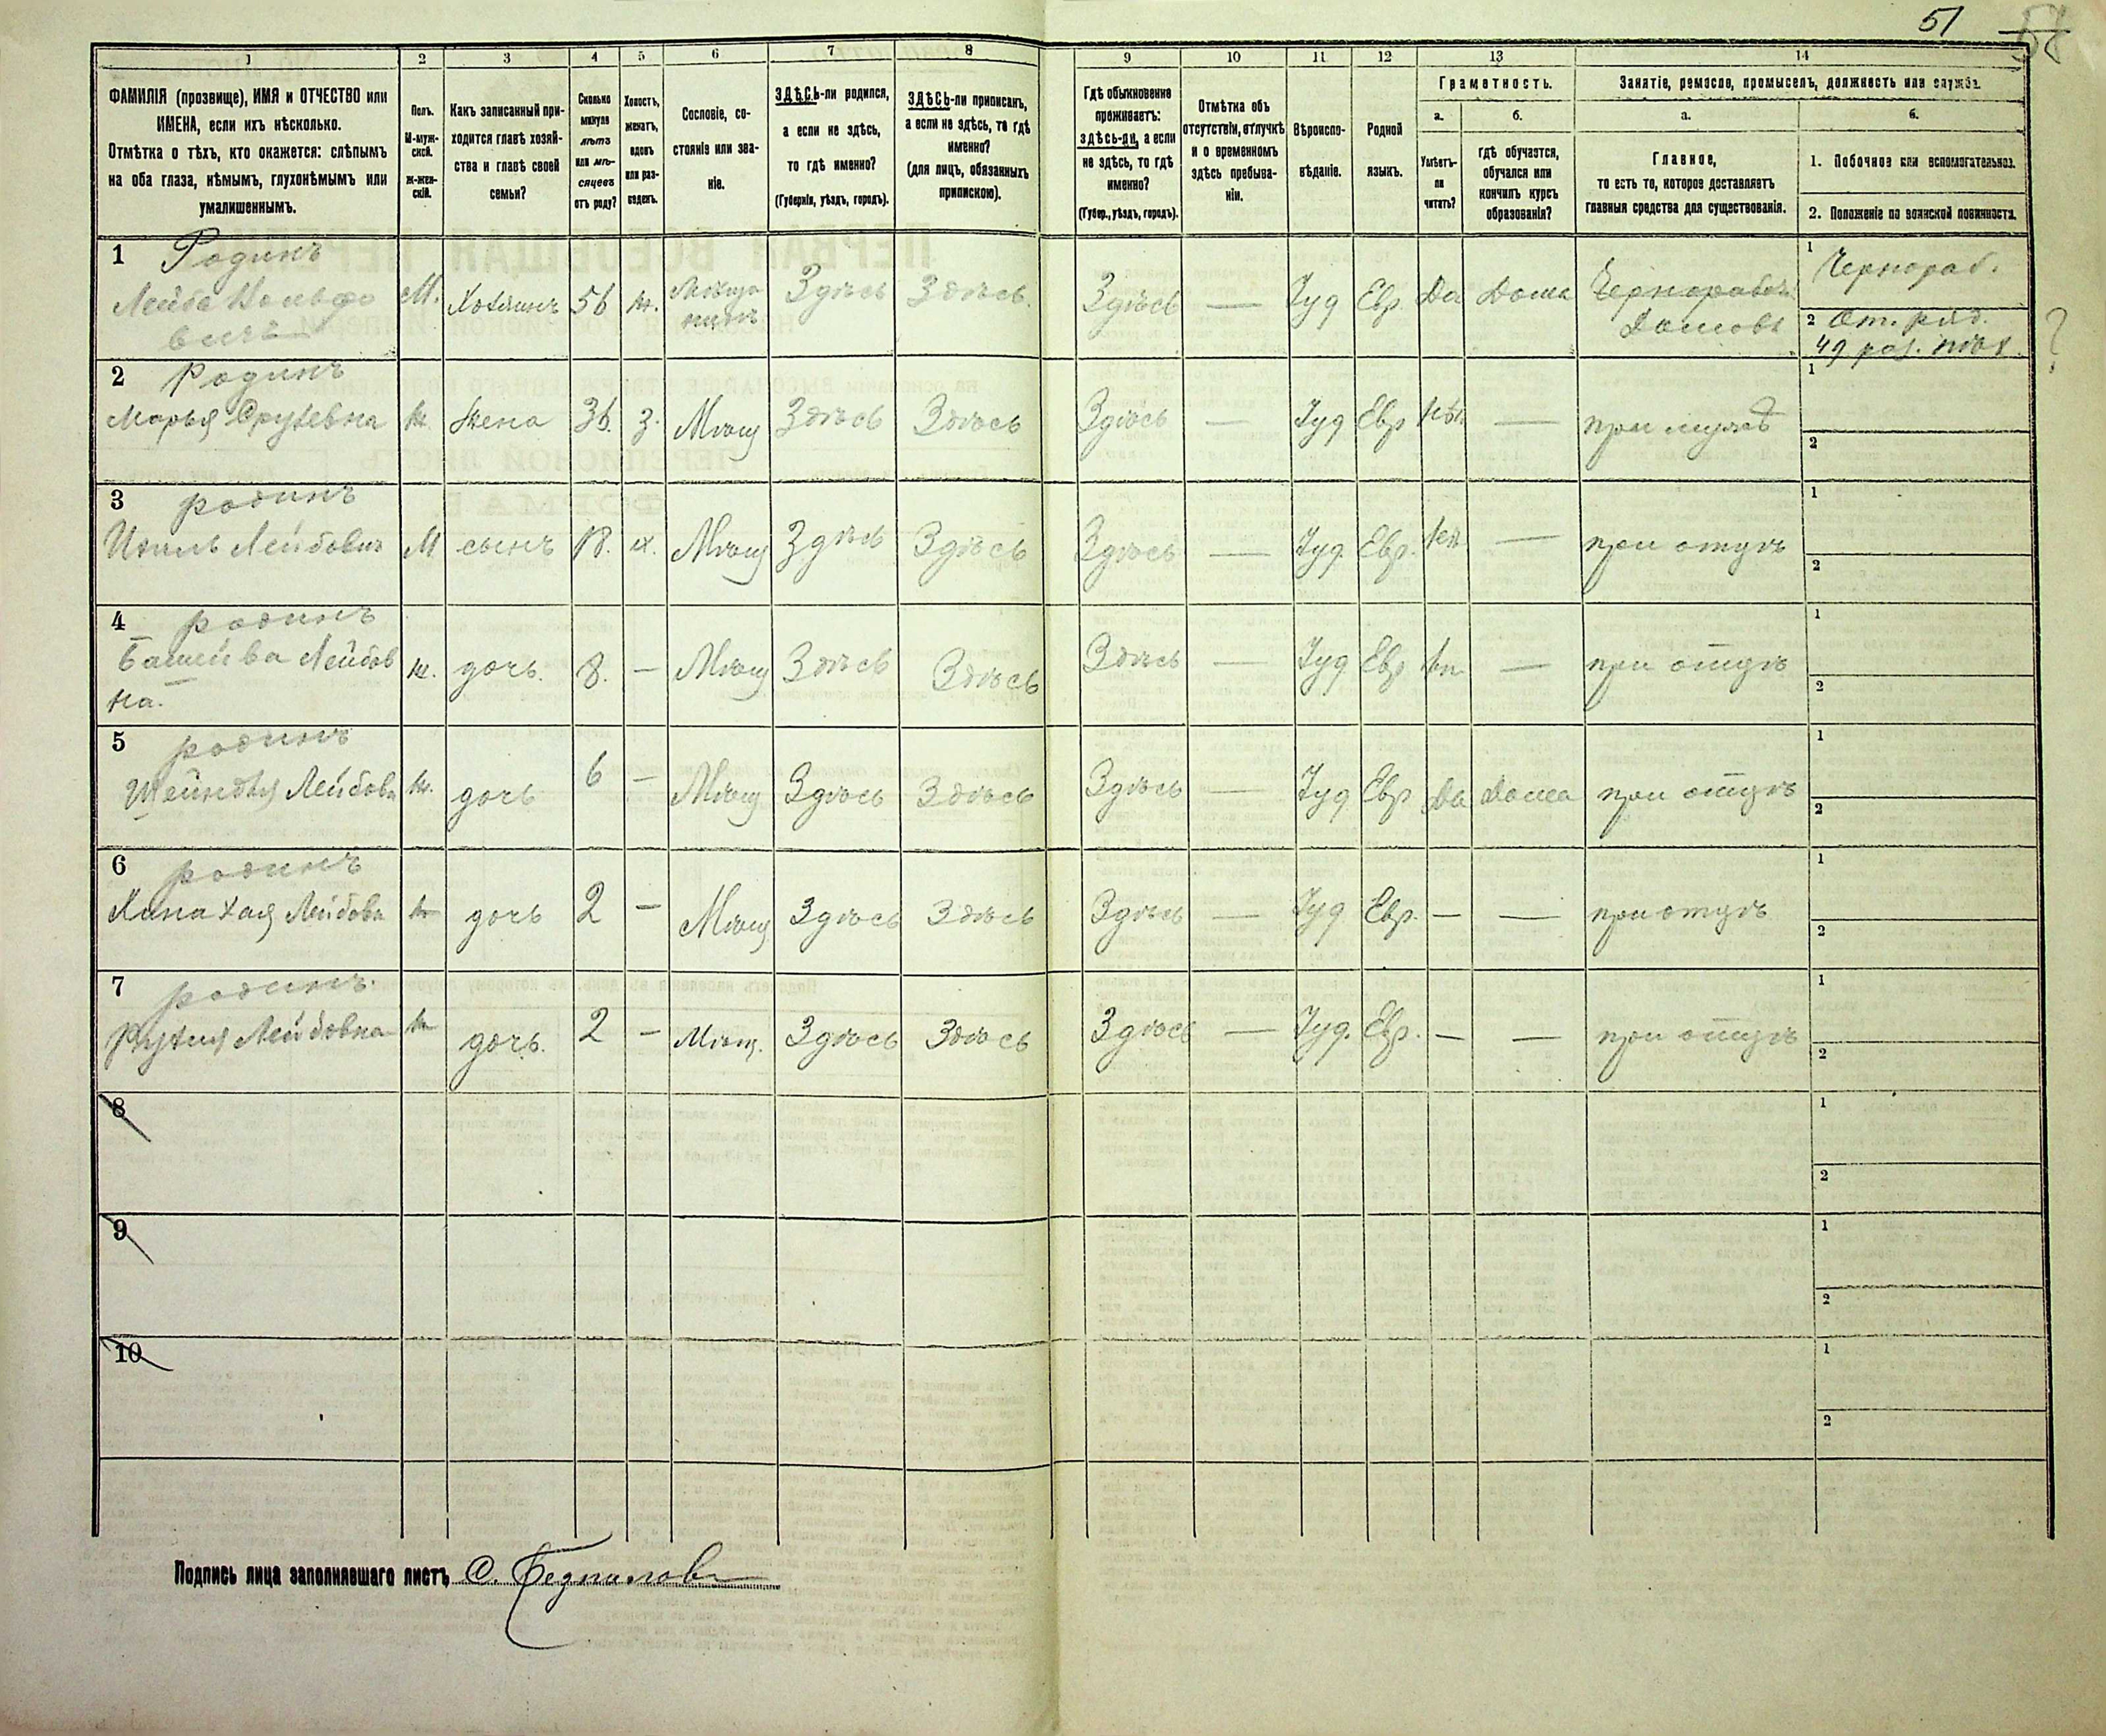 51
1
2
3
4
5
6
7
8
9
10
11
12
13
14
ФАМИЛІЯ (прозвище), ИМЯ и ОТЧЕСТВО или
ИМЕНА, если ихъ нѣсколько.
Отмѣтка о тѣхъ, кто окажется: слѣпымъ
на оба глаза, нѣмымъ, глухонѣмымъ или
умалишеннымъ.
Полъ.
М-муж-
ской.
Ж-жен-
скій.
Какъ записанный при-
ходится главѣ хозяй-
ства и главѣ своей
семьи?
Сколько
минуло
лѣтъ
или мѣ-
сяцевъ
отъ роду?
Холостъ,
женатъ,
вдовъ
или раз-
веденъ.
Сословіе, со-
стояніе или зва-
ніе.
ЗДѢСЬ-ли родился,
а если не здѣсь,
то гдѣ именно?
(Губернія, уѣздъ, городъ).
ЗДѢСЬ-ли приписанъ,
а если не здѣсь, то гдѣ
именно?
(для лицъ, обязанныхъ
припискою).
Гдѣ обыкновенно
проживаетъ:
здѣсь-ли, а если
не здѣсь, то гдѣ
именно?
(Губер., уѣздъ, городъ).
Отмѣтка объ
отсутствіи, отлучкѣ
и о временномъ
здѣсь пребыва-
ніи.
Вѣроиспо-
вѣданіе.
Родной
языкъ.
Грамотность.
а.
Умѣетъ-
ли
читать?
б.
гдѣ обучается,
обучался или
кончилъ курсъ
образованія?
Занятіе, ремесло, промыселъ, должность или служба.
а.
Главное,
то есть то, которое доставляетъ
главныя средства для существованія.
б.
1. Побочное или вспомогательное.
2. Положеніе по воинской повинности.
1 Родинъ
Лейба Вольфо
вичъ
М. Хозяинъ 56 ж. Здѣсь Здѣсь. Здѣсь — Іуд Евр. Да Дома
1 Чернораб.
2 От. ряд.
?
2 Родинъ
Марья
ж. Жена 36. з. Мѣщ Здѣсь Здѣсь Здѣсь — Іуд Евр Нѣт — при мужѣ
1
2
3 родинъ
Лейбович
М сынъ 18. х. Мѣщ Здѣсь Здѣсь Здѣсь — Іуд. Евр. — при отцѣ
1
2
4 родинъ
Башейва Лейбов
на.
ж. дочь. 8. — Мѣщ Здѣсь Здѣсь Здѣсь — Іуд. Евр — при отцѣ
1
2
5 родинъ
Шейндля Лейбовн
ж. дочь 6 — Мѣщ Здѣсь Здѣсь Здѣсь — Іуд Евр Да Дома при отцѣ
1
2
6 родинъ
Хая Лейбовн
ж дочь 2 — Мѣщ Здѣсь Здѣсь Здѣсь — Іуд Евр. — — при отцѣ
1
2
7 родинъ.
Лейбовна
ж дочь. 2 — Мѣщ. Здѣсь Здѣсь Здѣсь — Іуд. Евр. — — при отцѣ
1
2
8
1
2
9
1
2
10
1
2
Подпись лица заполнявшаго листъ